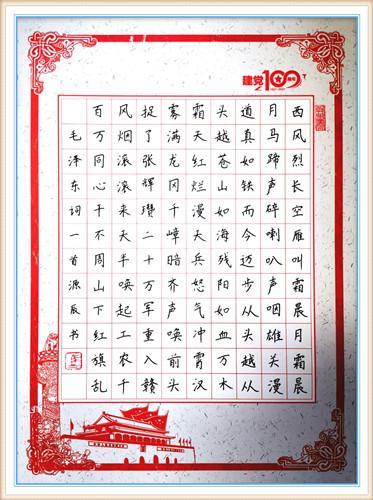 建党100周年
西风烈长空雁叫霜晨月霜晨
月马蹄声碎喇叭声咽雄关漫
道真如铁而今迈步从头越从
头越苍山如海残阳如血万木
霜天红烂漫天兵怒气冲霄汉
雾满龙冈千嶂暗齐声唤前头
捉了张辉瓒二十万军重入赣
风烟滚滚来天半唤起工农千
百万同心干不周山下红旗乱
毛泽东词一首源辰书